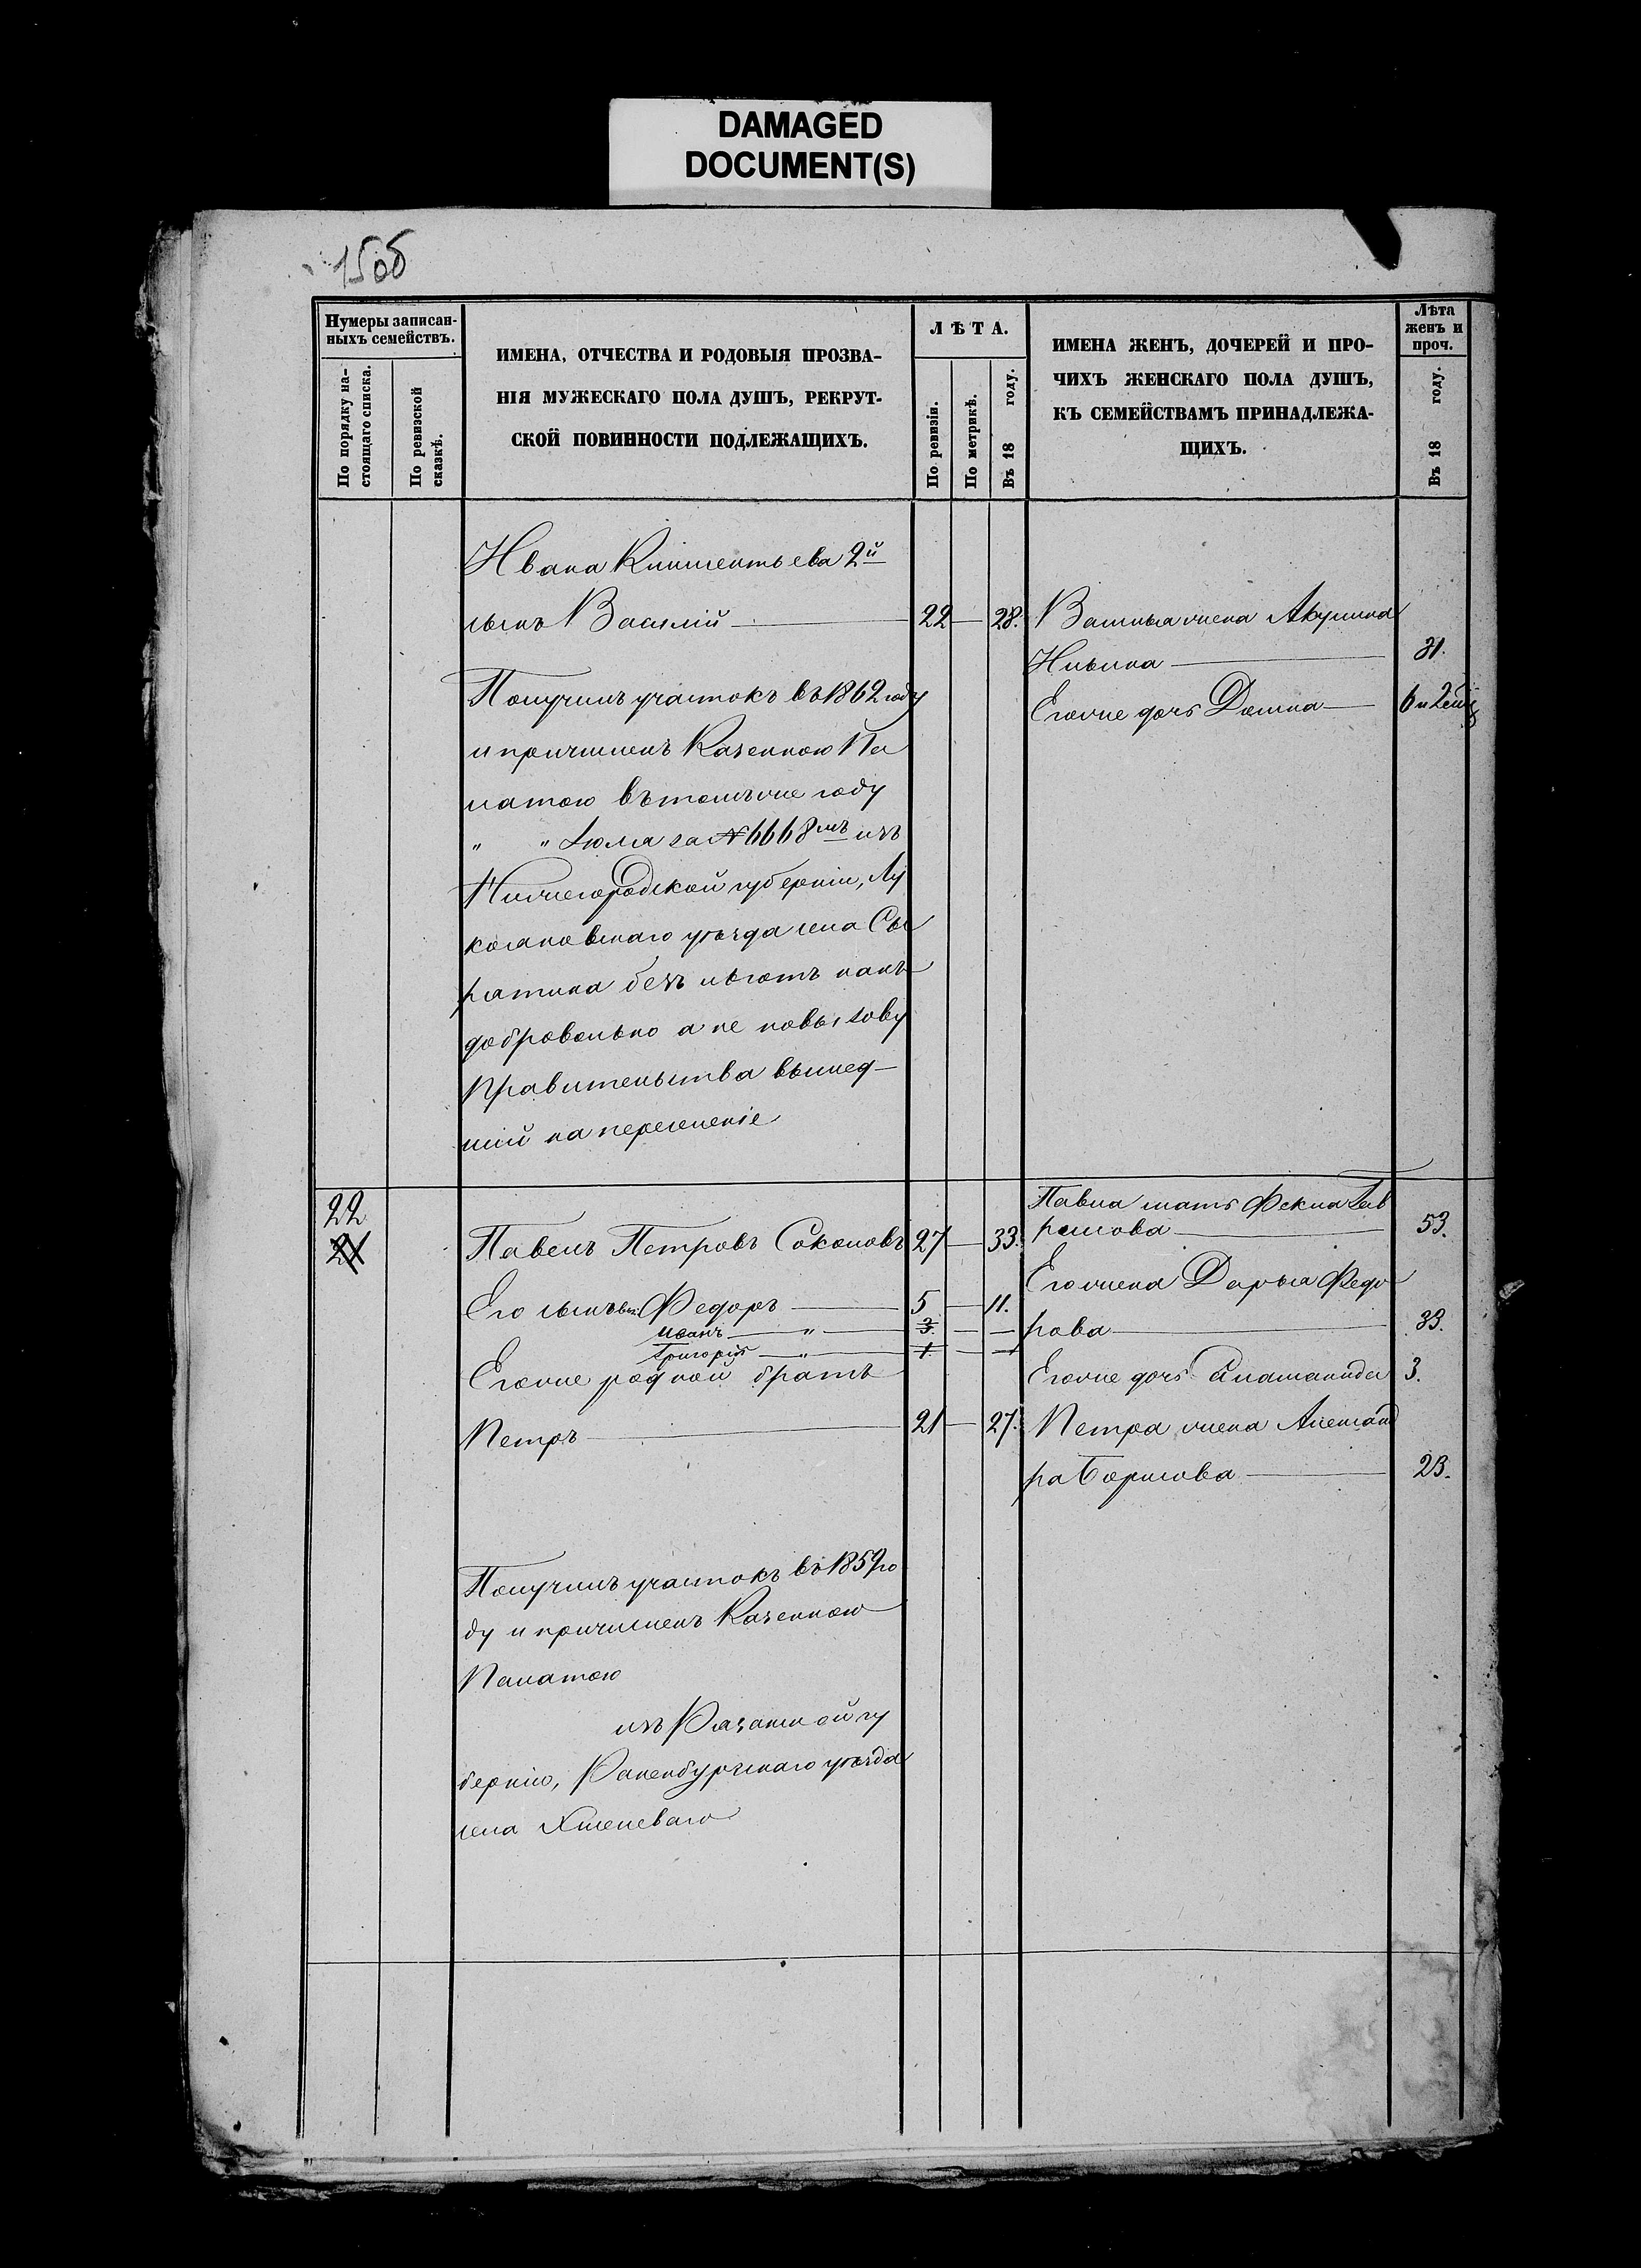 DAMAGED
DOCUMENT(S)
150б
Нумеры записан-
ныхъ семействъ.
По порядку на-
стоящаго списка.
По ревизской
сказкѣ.
ИМЕНА, ОТЧЕСТВА И РОДОВЫЯ ПРОЗВА-
НІЯ МУЖЕСКАГО ПОЛА ДУШЪ, РЕКРУТ-
СКОЙ ПОВИННОСТИ ПОДЛЕЖАЩИХЪ.
ЛѢТА.
По ревизіи.
По метрикѣ.
Въ 18 году.
ИМЕНА ЖЕНЪ, ДОЧЕРЕЙ И ПРО-
ЧИХЪ ЖЕНСКАГО ПОЛА ДУШЪ,
КЪ СЕМЕЙСТВАМЪ ПРИНАДЛЕЖА-
ЩИХЪ.
Лѣта
женъ и
проч.
Въ 18 году.
Ивана Климентьева 2й
сынъ Василій — 22 — 28.
Василья жена Акулина
31.
Его же дочь Домна — 6 и
Получилъ участокъ въ 1862 году
и причисленъ Казенною Па
латою въ томъ же году
" " Іюля за № 6668мъ изъ
Нижегородской губерніи, Лу
кояновскаго уѣзда села Сы
рятина безъ льготъ какъ
добровольно а не по вызову
Правительства вышед-
шій на переселеніе
22
21
Павелъ Петровъ Соколовъ 27 — 33.
Его сынъ вья: Федоръ — 5 — 11.
Иванъ — " — 3 — —
Григорій — " — 1 — —
Его же родной братъ
Петръ — 21 — 27.
Павла мать Фекла Гав
рилова — 53.
Его жена Дарья Федо
рова — 33.
Его же дочь 3.
Петра жена Александ
ра Борисова — 23.
Получилъ участокъ въ 1859 го
ду и причисленъ Казенною
Палатою
изъ Рязанской гу
берніи, Раненбургскаго уѣзда
села Хмелеваго